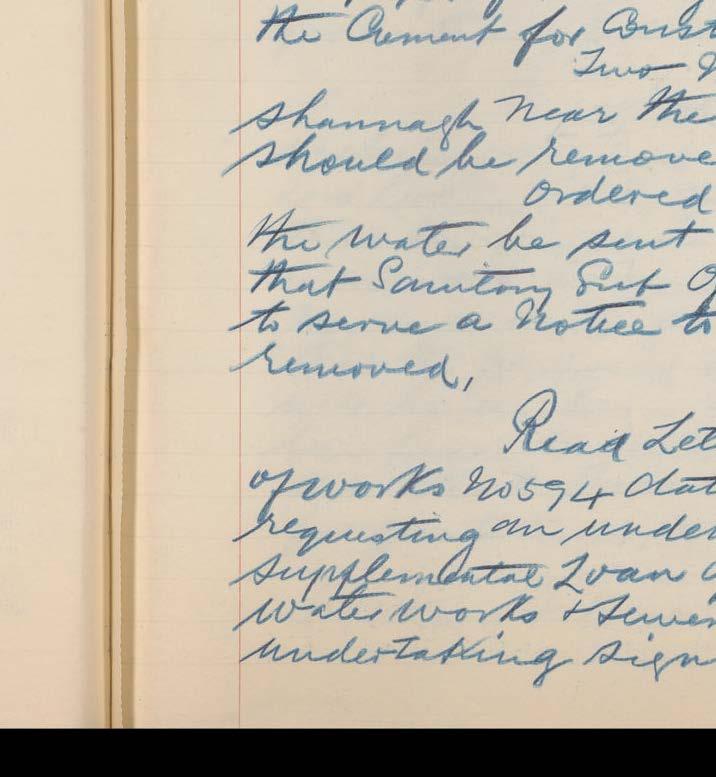 the Cement for Const
Two
Shannagh Near the
should be remove
Ordered
the water be sent
that Sanitory Sub O
to serve a Notice to
removed,
Read Let
of works No 594 dat
requesting an under
supplemental Loan
waterworks & Sewer
undertaking sign